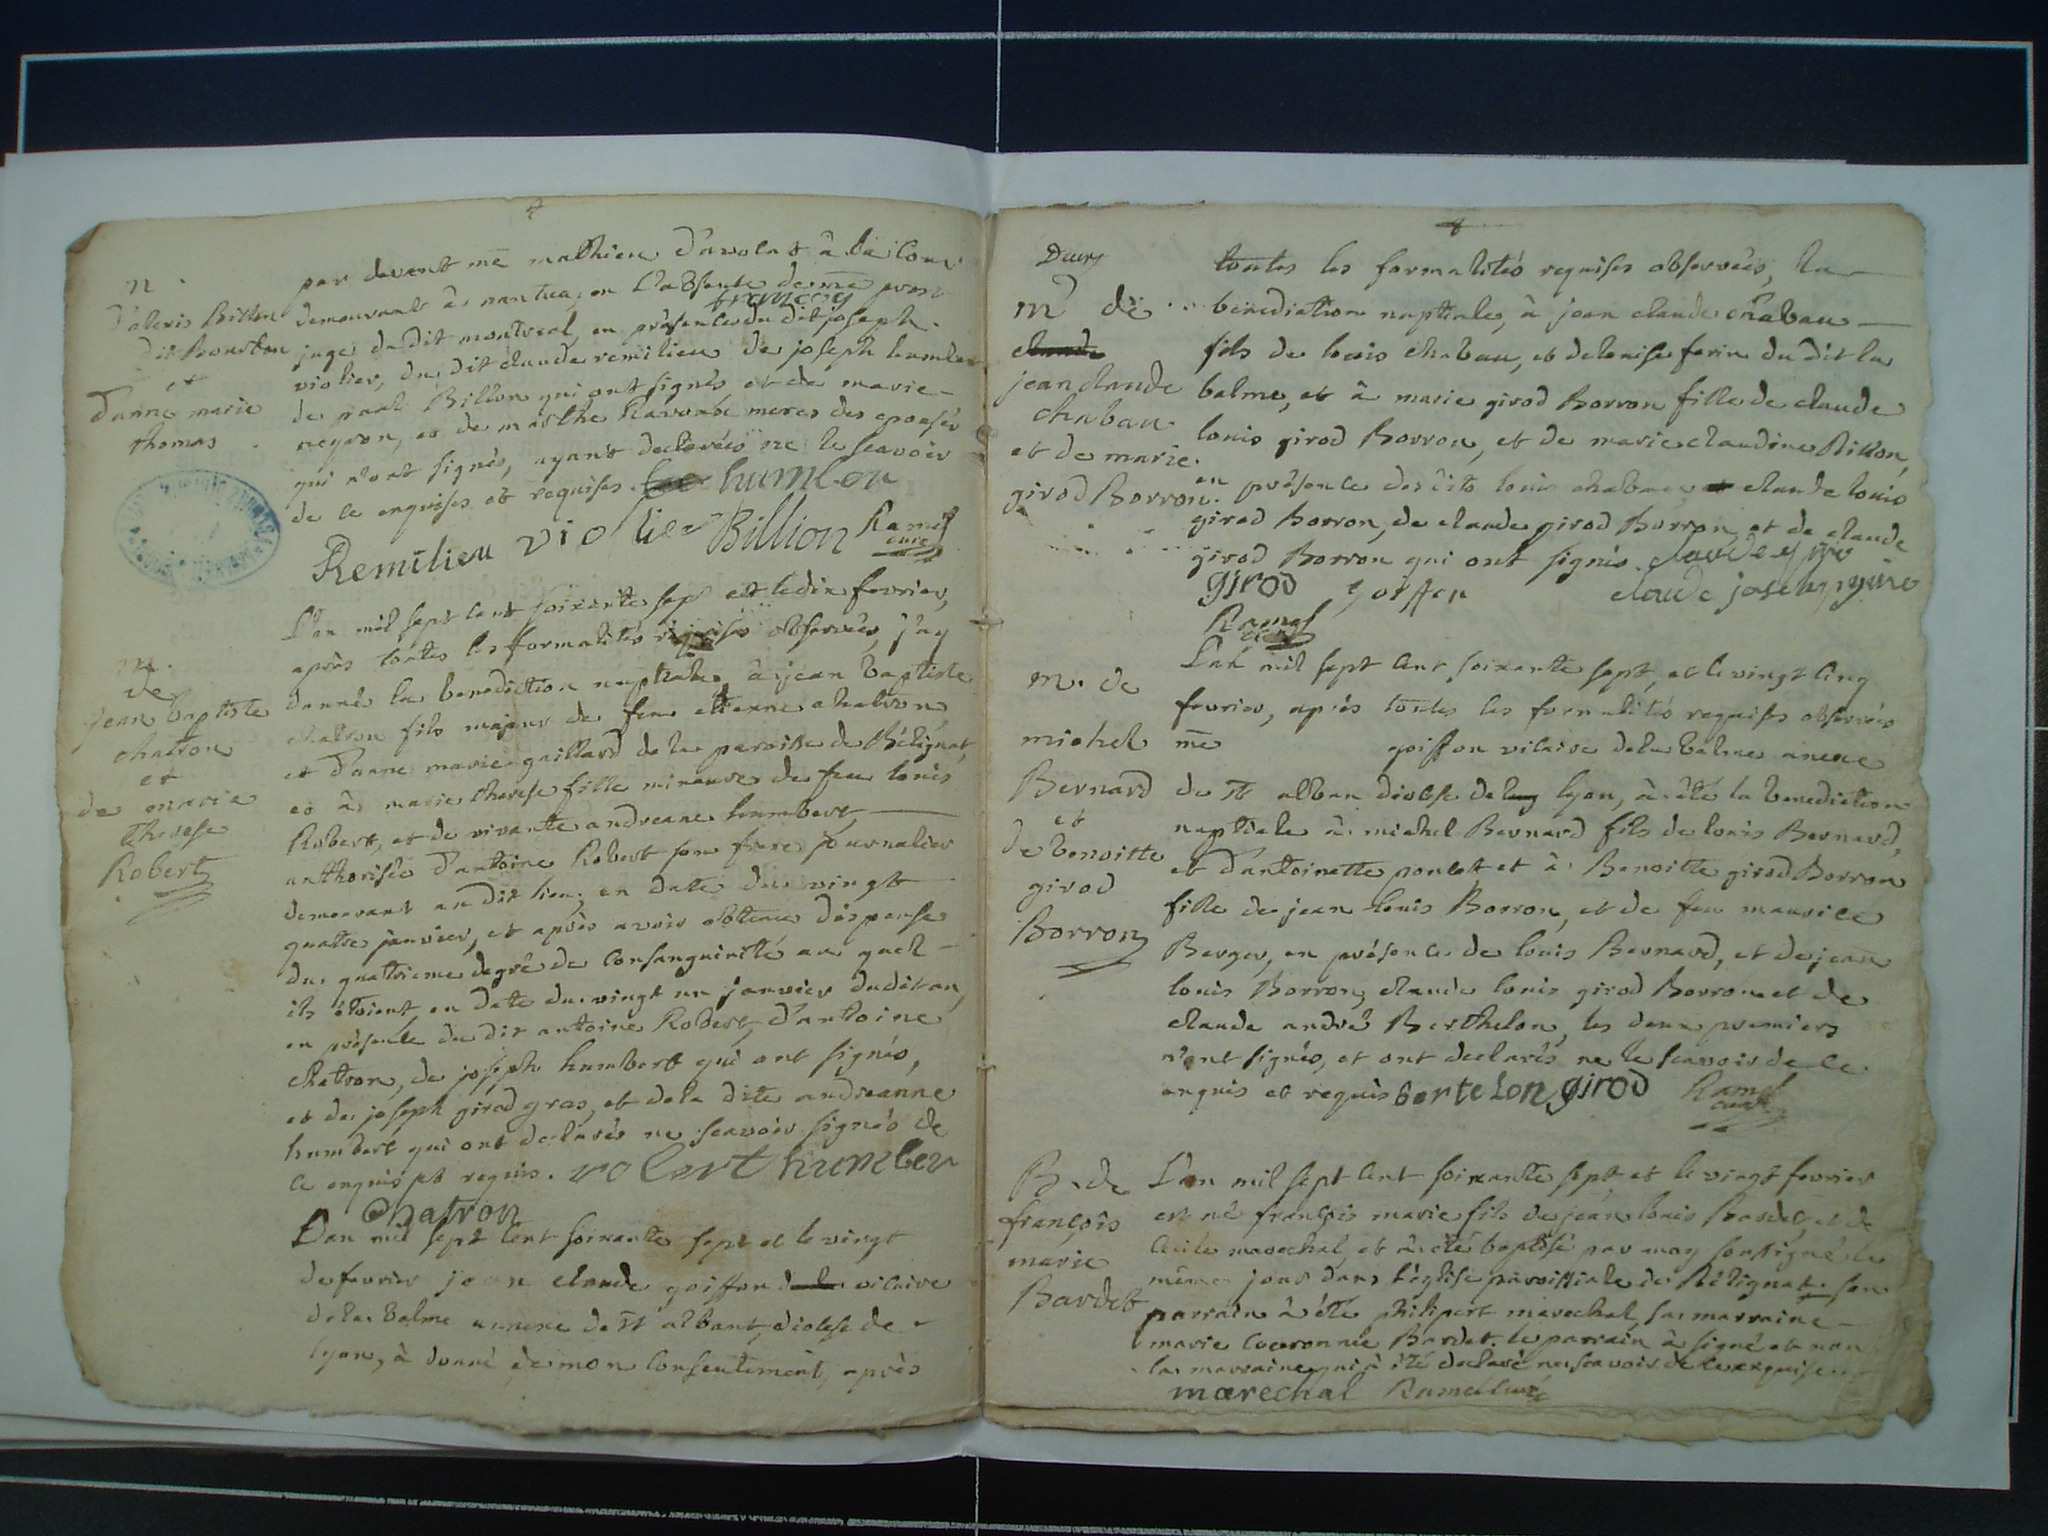 m.
d'alexis Billon
dit Bourbon
et
d'anne marie
thomas
par devant me mathieu d'avolat à la Cour
demeurant à nantua, en l'absence de me
françois
juge du dit montreal, en présence du dit joseph
violier, du dit claude remilieu de joseph humbert
de paul Billon qui ont signés et de marie
neyron, et de marthe meres des epousés
qui n'ont signés, ayant declarées ne le scavoir
de ce enquises et requises. humbert
Remilieu violier Billion Ramel
curé
m.
de
jean baptiste
chatron
et
de marie
therese
Robert
L'an mil sept cent soixante sept et le dix fevrier,
après toutes les formalités requises observées, j'ay
donné la benediction nuptiale, à jean baptiste
chatron fils majeur de feu etienne chatron
et d'anne marie gaillard de la paroisse de Bélignat,
et à marie therese fille mineure de feu louis
Robert, et de vivante andreane humbert,
authorisée d'antoine Robert son frere journalier
demeurant au dit lieu, en date du vingt
quatre janvier, et après avoir obtenu dispense
du quatrieme degré de consanguinité au quel
ils étoient, en date du vingt un janvier dudit an,
en présence du dit antoine Robert, d'antoine
chatron, de joseph humbert qui ont signés,
et de joseph girod gras, et de la dite andreanne
humbert qui ont declarés ne scavoir signés de
ce enquis et requis. robert humber
Chatron
L'an mil sept cent soixante sept et le vingt
de fevrier jean claude goiffon vicaire
de la balme annexe de st albant, diocese de
lyon, à donné de mon consentement, après
Deux
m de
claude
jean claude
chabau
et de marie
girod Borron.
toutes les formalités requises observées, la
benediction nuptiale, à jean claude chabau
fils de louis chabau, et de louise ferin du dit la
balme, et à marie girod Borron fille de claude
louis girod Borron, et de marie claudine Billon,
en présence des dits louis chabau, et claude louis
girod borron, de claude girod borron et de claude
girod Borron qui ont signés.
girod goiffon claude
Ramel
curé
m. de
michel
Bernard
et
de benoitte
girod
Borron
L'an mil sept cent soixante sept, et le vingt cinq
fevrier, après toutes les formalités requises observées
me goiffon vicaire de la balme anexe
de st alban diocese de lyon, à été la benediction
nuptiale à michel Bernard fils de louis Bernard,
et d'antoinette poncet et à Benoitte girod Borron
fille de jean louis Borron, et de feu maurice
Berger, en présence de louis Bernard, et de jean
louis Borron, claude louis girod Borron et de
claude andré Berthelon, les deux premiers
n'ont signés, et ont declarés ne le scavoir de ce
enquis et requis bertelon girod Ramel
curé
B. de
françois
marie
Bardet
L'an mil sept cent soixante sept et le vingt fevrier
est né françois marie fils de jean louis Bardet et de
Cecile marechal, et à été baptisé par moy soussigné le
même jour dans l'église paroissiale de Bélignat son
parrain à été philipert marechal, sa marraine
marie Bardet, le parrain à signé et non
la marraine qui à été declaré ne scavoir de ce enquise
marechal Ramel curé